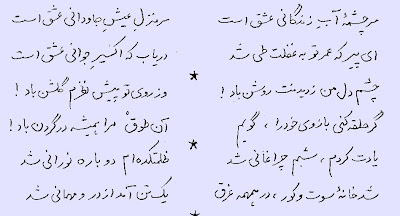 سرچشمهٔ آب زندگانی عشق است سرمنزل عیش جاودانی عشق است
ای پیر که عمر تو به غفلت طی شد دریاب که اکسیر جوانی عشق است
*
چشم دل من ز دیدنت روشن باد ! وز روی تو پیش نظرم گلشن باد !
گر حلقه کنی بازوی خود را ، گویم آن طوق مرا همیشه در گردن باد !
*
یادت کردم ، شبم چراغانی شد ظلمتکده‌ام دوباره نورانی شد
شد خانهٔ سوت و کور ، در همهمه غرق یک تن آمد از در و مهمانی شد
*